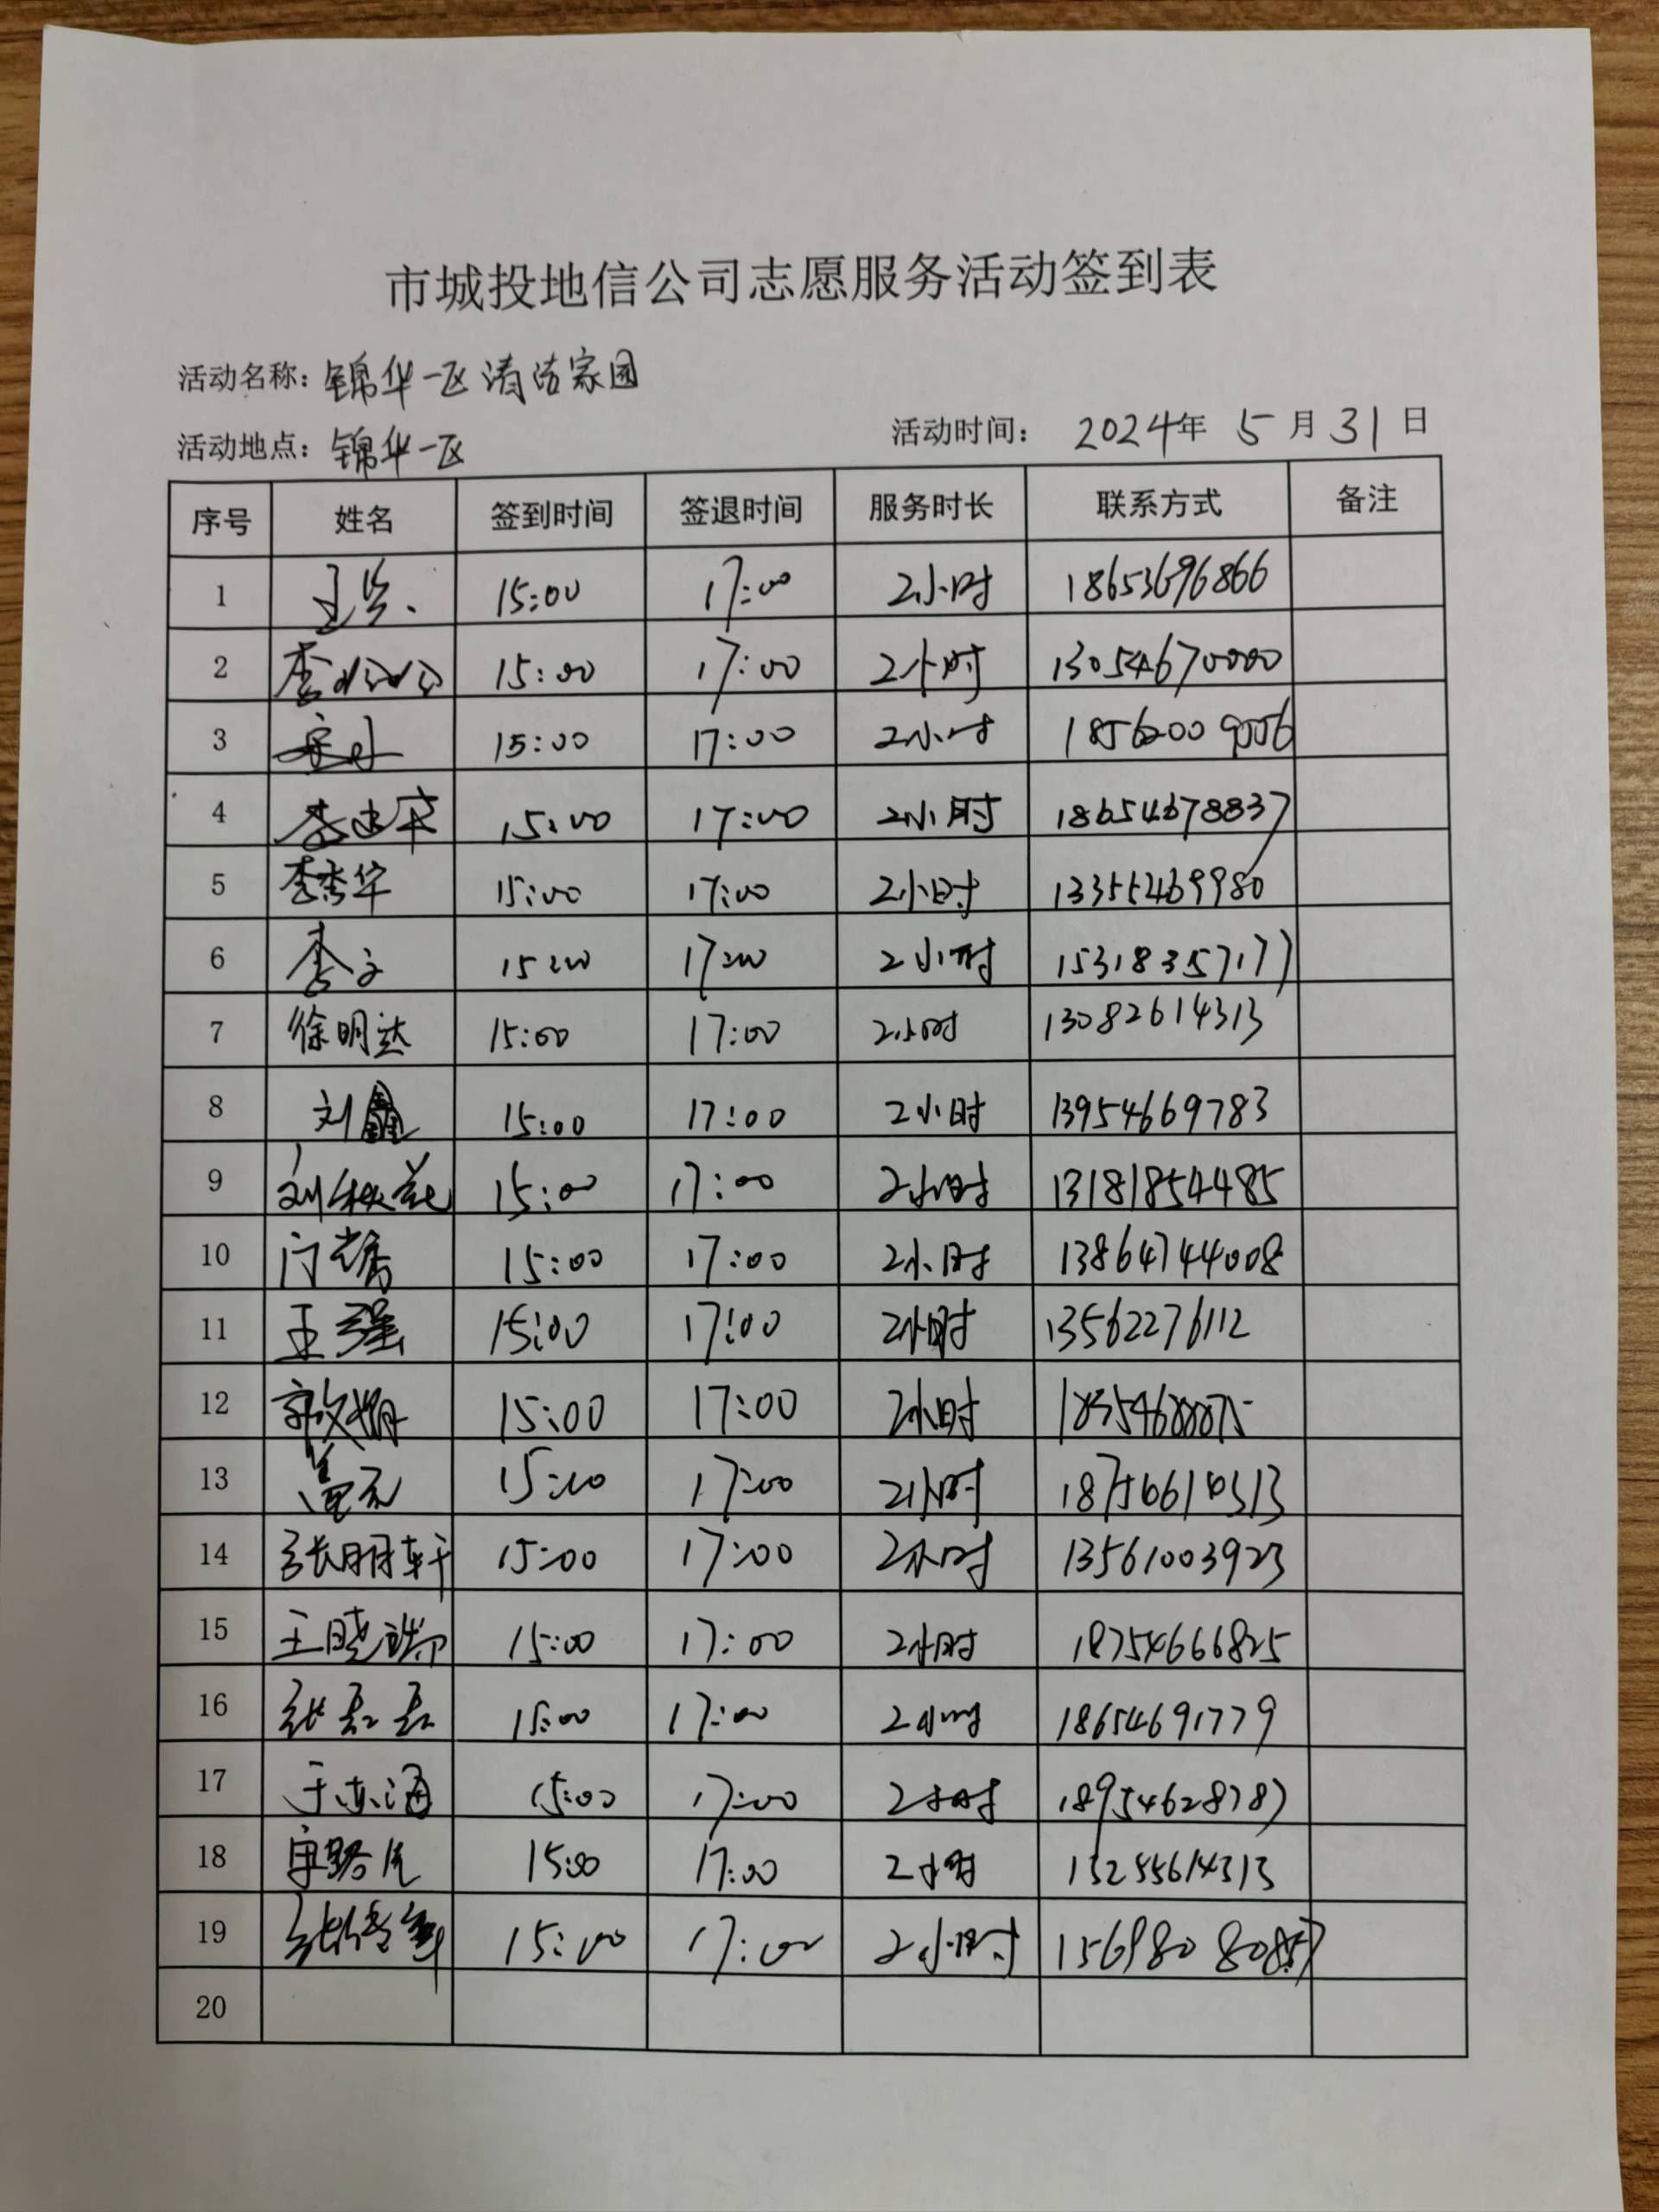 市城投地信公司志愿服务活动签到表
活动名称: 锦华一区清洁家园
活动地点: 锦华一区 活动时间: 2024年 5月31日
序号 姓名 签到时间 签退时间 服务时长 联系方式 备注
1 15:00 17:00 2小时 18653696866
2 15:00 17:00 2小时 13054670000
3 15:00 17:00 2小时
4 15:00 17:00 2小时 18654678837
5 李秀华 15:00 17:00 2小时 13355469980
6 15:00 17:00 2小时 15318357177
7 徐明达 15:00 17:00 2小时 13082614313
8 刘鑫 15:00 17:00 2小时 13954669783
9 刘秋花 15:00 17:00 2小时 13181854485
10 15:00 17:00 2小时 13864744008
11 王强 15:00 17:00 2小时 13562276112
12 15:00 17:00 2小时
13 15:00 17:00 2小时
14 张明轩 15:00 17:00 2小时 13561003923
15 王晓瑞 15:00 17:00 2小时 18754666825
16 张磊磊 15:00 17:00 2小时 18654691779
17 于东海 15:00 17:00 2小时 18954628787
18 15:00 17:00 2小时 15255614313
19 15:00 17:00 2小时
20